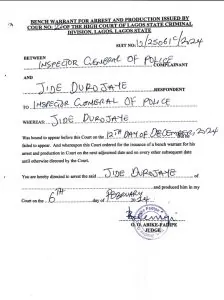 BENCH WARRANT FOR ARREST AND PRODUCTION ISSUED BY
COUR NO. OF THE HIGH COURT OF LAGOS STATE CRIMINAL
DIVISION, LAGOS, LAGOS STATE
SUIT NO:
BETWEEN
INSPECTOR GENERAL OF POLICE
COMPLAINANT
AND
JIDE DUROJAYE
RESPONDENT
TO INSPECTOR GENERAL OF POLICE
WHEREAS: JIDE DUROJAYE
Was bound to appear before this Court on the 12TH DAY OF DECEMBER, 2024
failed to appear. And whereupon this Court ordered for the issuance of a bench warrant for his
arrest and production in Court on the next adjourned date and on every other subsequent date
until otherwise directed by the Court.
You are hereby directed to arrest the said JIDE DUROJAYE
and produced him in my
Court on the 6TH day FEBRUARY 20
JUDGE